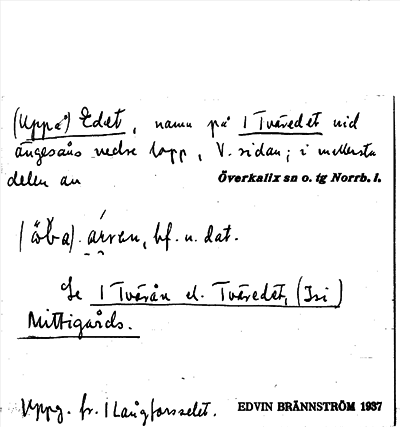 (Uppå) Edet, namn på 1 Tväredet vid
ängesåns nedre lopp, V. sidan; i mellersta
delen av Överkalix sn o. tg Norrb. l.
bf. n. dat.
Se 1 Tvärån el. Tväredet, (Isi)
Mittigårds.
Uppg. fr. 1 Långforsselet. EDVIN BRÄNNSTRÖM 1937